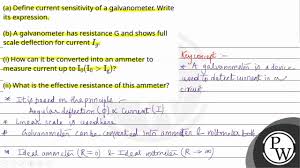 (a) Define current sensitivity of a galvanometer. Write
its expression.
(b) A galvanometer has resistance G and shows full
scale deflection for current I_g.
(i) How can it be converted into an ammeter to
measure current up to I₀(I₀ > I_g)?
(ii) What is the effective resistance of this ammeter?
Key concept -
* A galvanometer is a device
used to detect current in a
circuit
* It is based on the principle -
Angular deflection (θ) ∝ Current (I)
* Linear scale is used here
* Galvanometer can be converted into ammeter & voltmeter both
* Ideal ammeter (R = 0) & Ideal voltmeter (R → ∞)
PW